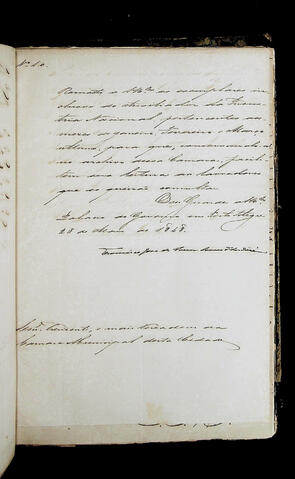 Nº 20.
Remetto a VMces os exemplares in-
clusos do Auxiliador da Indus-
tria Nacional, pertencentes aos
mezes de Janeiro, Fevereiro e Março
ultimo, para que, conservando-os
no archivo dessa Camara, facili-
tem sua leitura aos lavradores
que os queirão consultar.
Deos Guarde a VMces
Palacio do Governo em Pto Alegre
28 de de 1848.
Francisco José de Souza Soares d'Andréa
Snrs. Presidente, e mais Vereadores da
Camara Municipal desta Cidade